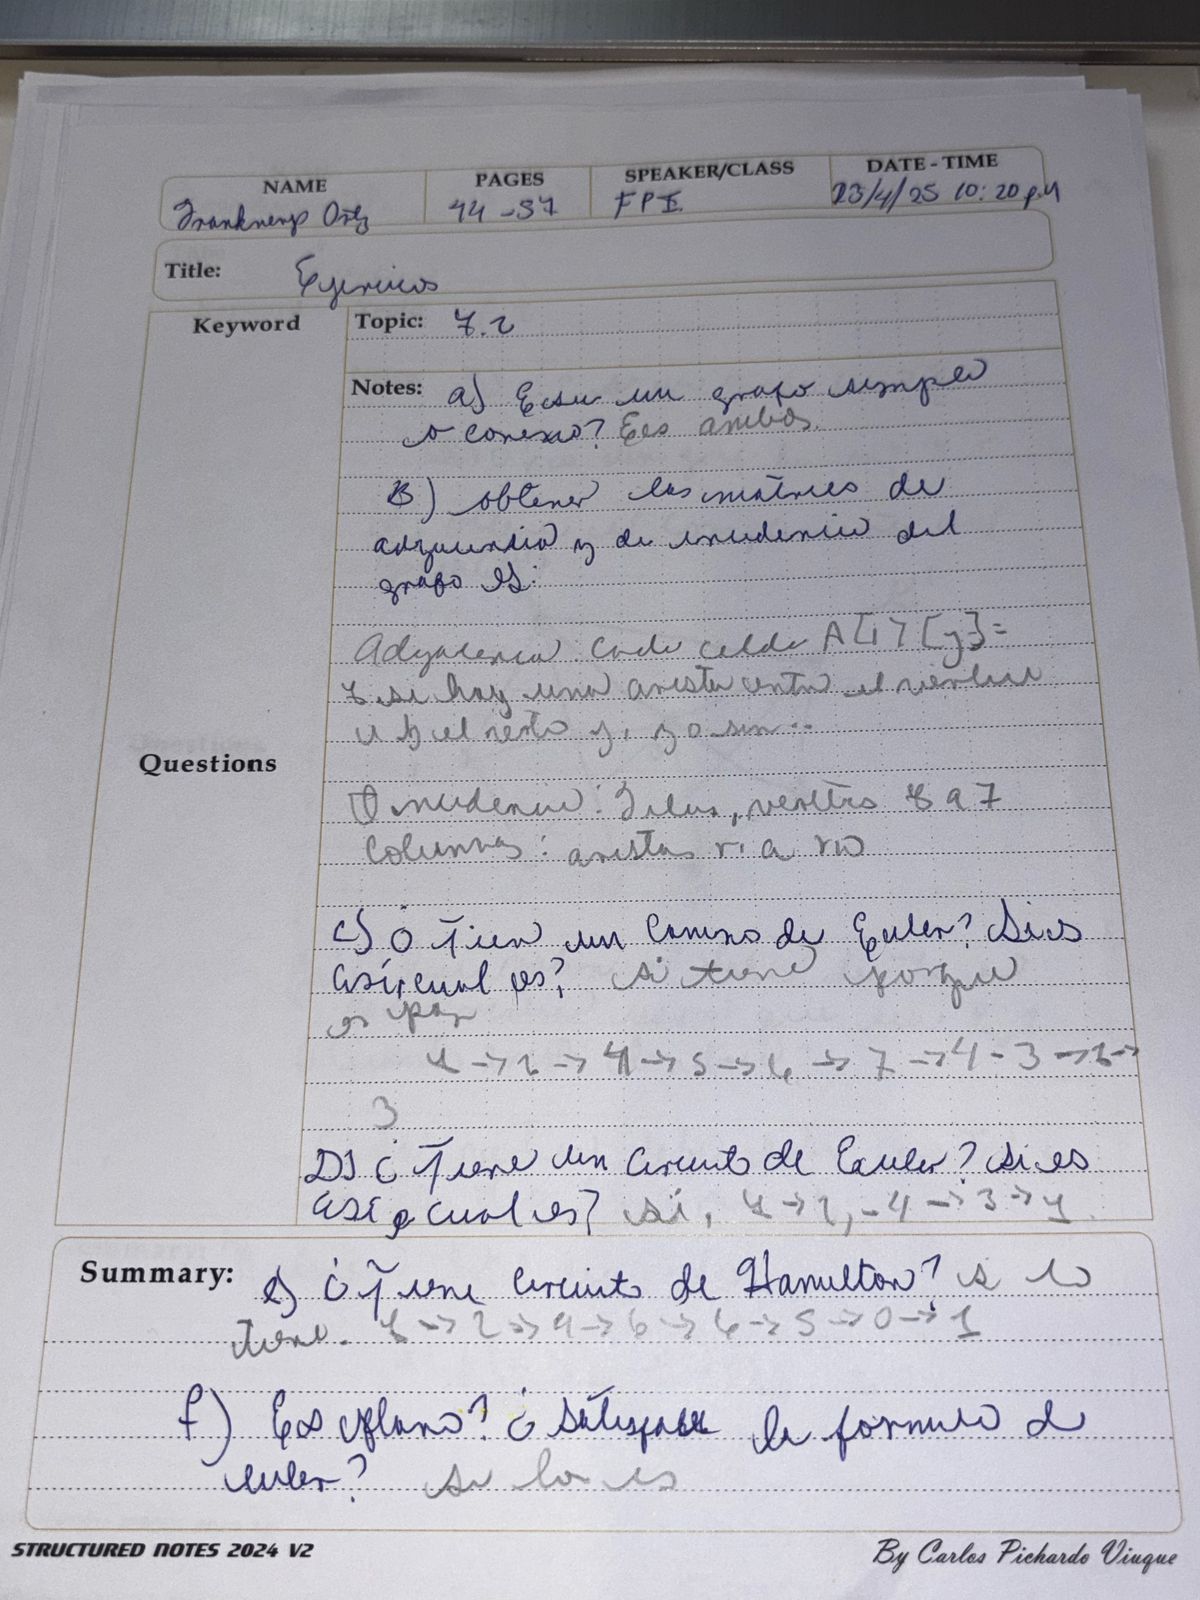 NAME
PAGES
SPEAKER/CLASS
DATE - TIME
44 - 57
FP I
23/4/25 10:20 p.M
Title: Ejercicios
Keyword
Topic: 7.2
Notes: a) Es un grafo simple
o conexo? Es ambos.
B) obtener las matrices de
adyacencia y de incidencia del
grafo G.
Adyacencia: Cada celda A[i][y]=
1 si hay una arista entre el vertice
y 0 sin..
Questions
Incidencia: Filas, vertices 1 a 7
Columnas: aristas r1 a r10
c) ¿Tiene un Camino de Euler? Si es
así, cual es? si tiene porque
es par
1 -> 2 -> 4 -> 5 -> 6 -> 7 -> 4 - 3 -> 2 ->
3
D) ¿Tiene un Circuito de Euler? si es
así, cual es? si, 1 -> 2, - 4 -> 3 -> 1.
Summary: e) ¿Tiene Circuito de Hamilton? si lo
tiene. 1 -> 2 -> 4 -> 6 -> 6 -> 5 -> 0 -> 1
f) Es plano? ¿Satisface la formula de
euler? si lo es
STRUCTURED NOTES 2024 V2
By Carlos Pichardo Viuque